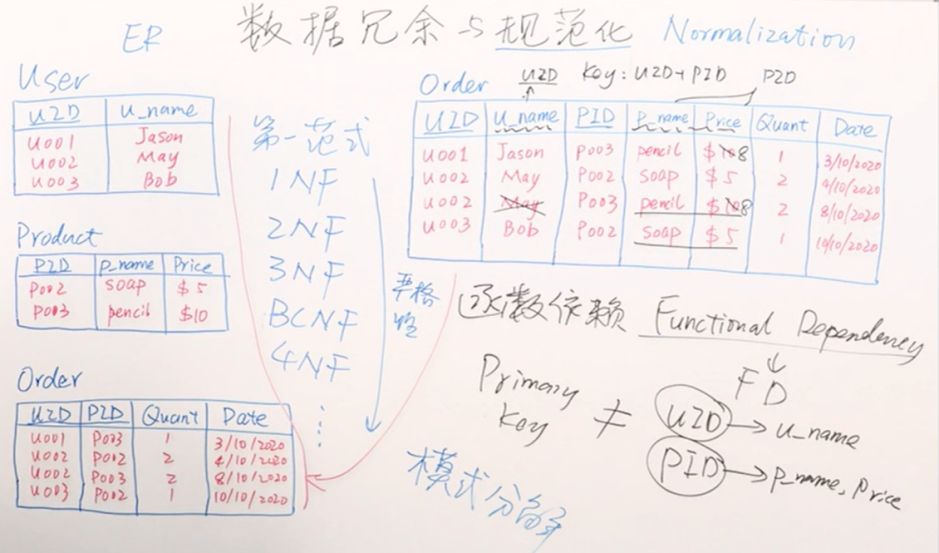 ER 数据冗余与规范化 Normalization
User
UID u_name
U001 Jason
U002 May
U003 Bob
Product
PID p_name Price
P002 soap $5
P003 pencil $10
Order
UID PID Quant Date
U001 P003 1 3/10/2020
U002 P002 2 4/10/2020
U002 P003 2 8/10/2020
U003 P002 1 10/10/2020
第一范式
1NF
2NF
3NF
BCNF
4NF
⋮
严格
Order UID Key: UID+PID PID
UID u_name PID p_name Price Quant Date
U001 Jason P003 pencil $10 8 1 3/10/2020
U002 May P002 soap $5 2 4/10/2020
U002 May P003 pencil $10 8 2 8/10/2020
U003 Bob P002 soap $5 1 10/10/2020
函数依赖 Functional Dependency
FD
Primary Key ≠
UID → u_name
PID → p_name, Price
模式分解